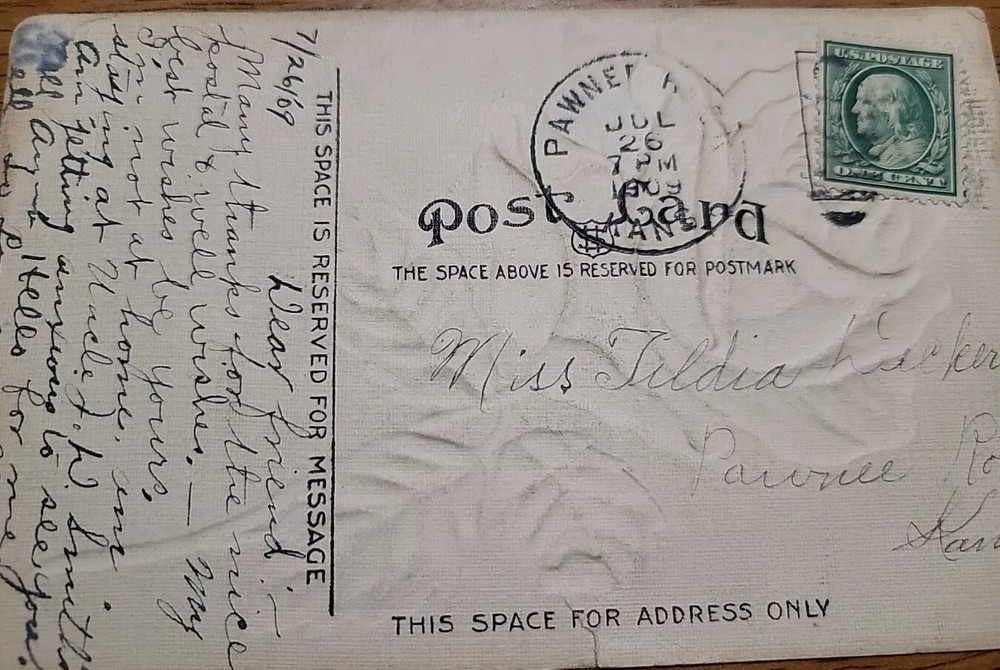 7/26/09
Dear friend:—
Many thanks for the nice
postal & well wishes. — My
best wishes be yours.
I'm not at home. am
staying at Uncle J. W. Smith
Am getting anxious to see you.
Tell Hello for me
THIS SPACE IS RESERVED FOR MESSAGE
PAWNEE R
JUL
26
7 PM
1909
KANS
U.S. POSTAGE
ONE CENT
Post Card
THE SPACE ABOVE IS RESERVED FOR POSTMARK
Miss Tildia
Pawnee Ro
Kan
THIS SPACE FOR ADDRESS ONLY